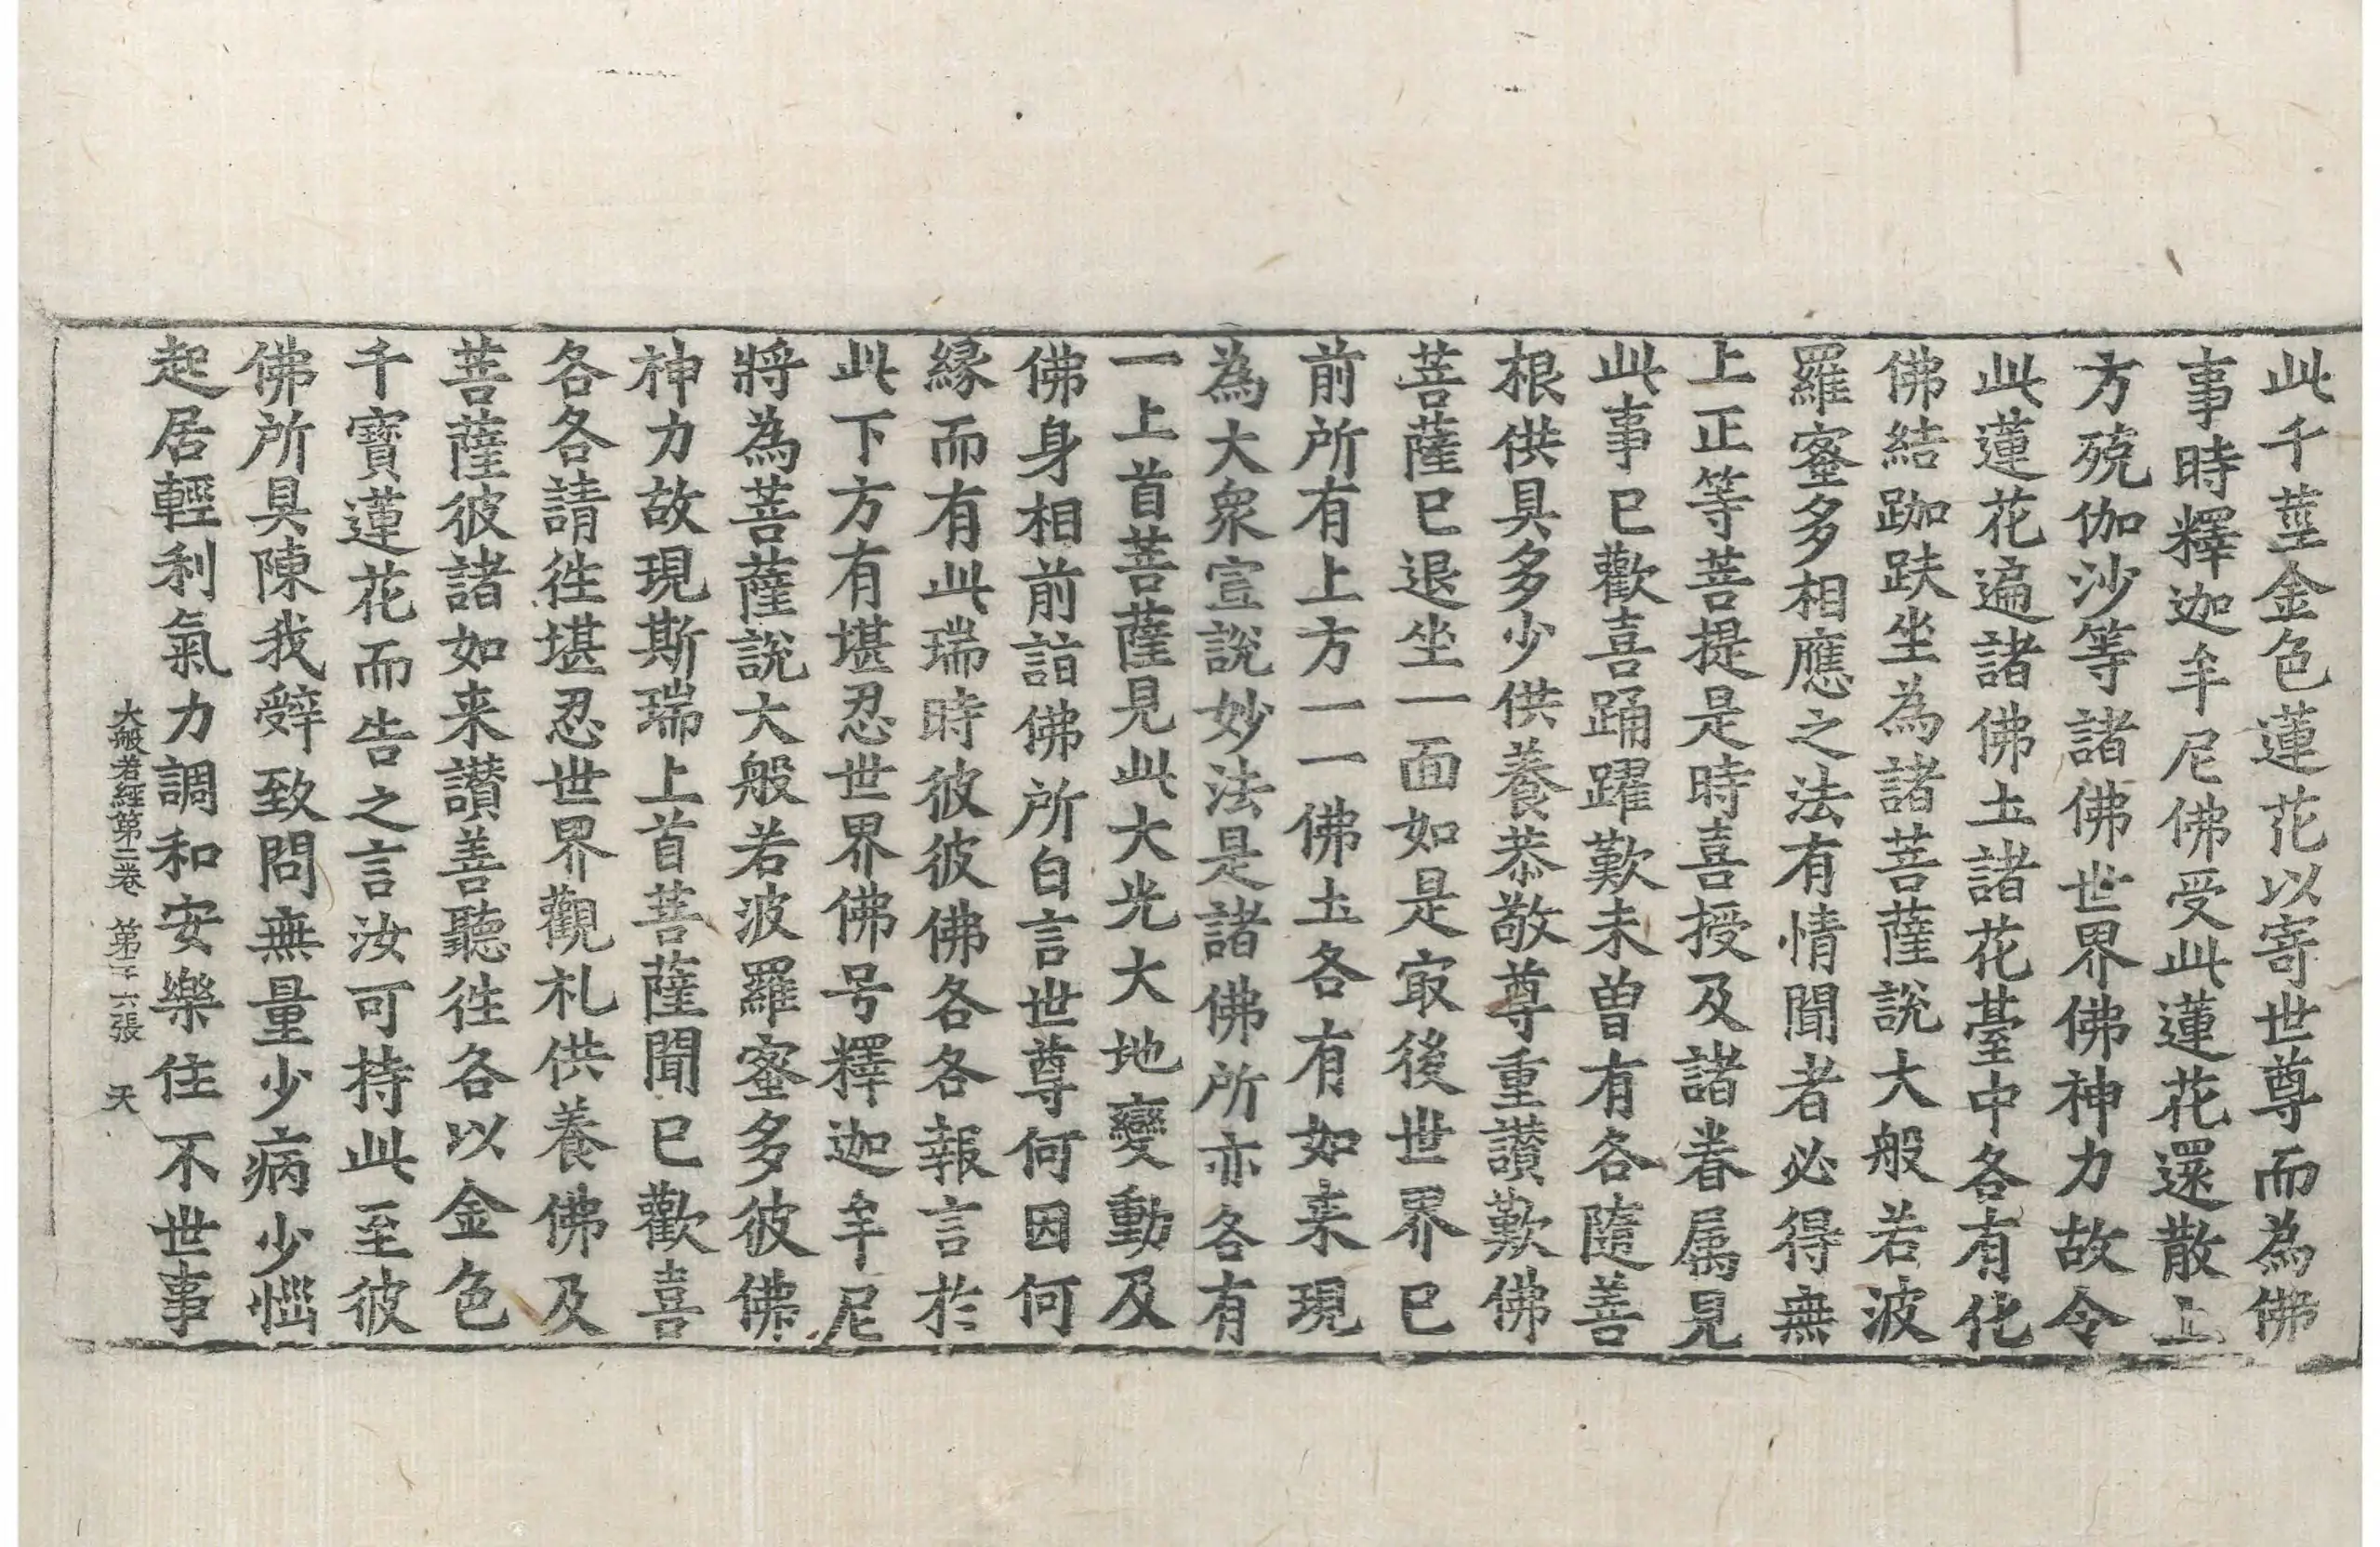 此千莖金色蓮花以寄世尊而為佛
事時釋迦牟尼佛受此蓮花還散上
方殑伽沙等諸佛世界佛神力故令
此蓮花遍諸佛土諸花臺中各有化
佛結跏趺坐為諸菩薩說大般若波
羅蜜多相應之法有情聞者必得無
上正等菩提是時喜授及諸眷属見
此事已歡喜踊躍歎未曾有各隨善
根供具多少供養恭敬尊重讚歎佛
菩薩已退坐一面如是冣後世界已
前所有上方一一佛土各有如来現
為大衆宣說妙法是諸佛所亦各有
一上首菩薩見此大光大地變動及
佛身相前詣佛所白言世尊何因何
緣而有此瑞時彼彼佛各各報言於
此下方有堪忍世界佛号釋迦牟尼
將為菩薩說大般若波羅蜜多彼佛
神力故現斯瑞上首菩薩聞已歡喜
各各請徃堪忍世界觀礼供養佛及
菩薩彼諸如来讚善聽徃各以金色
千寶蓮花而告之言汝可持此至彼
佛所具陳我辤致問無量少病少惱
起居輕利氣力調和安樂住不世事
大般若經第二卷 第二十六張 天